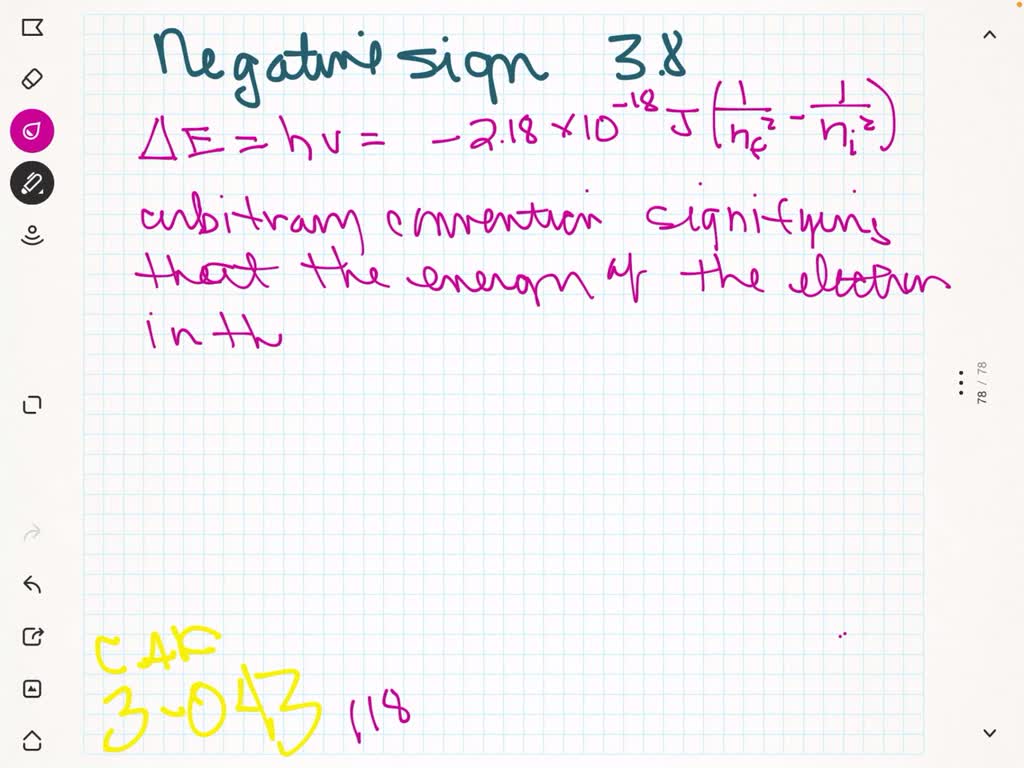 Negative sign 3.8
ΔE = hν = -2.18 × 10^-18 J (1/n_f^2 - 1/n_i^2)
arbitrary convention signifying
that the energy of the electron
in th
78 / 78
CAF
3-043 118